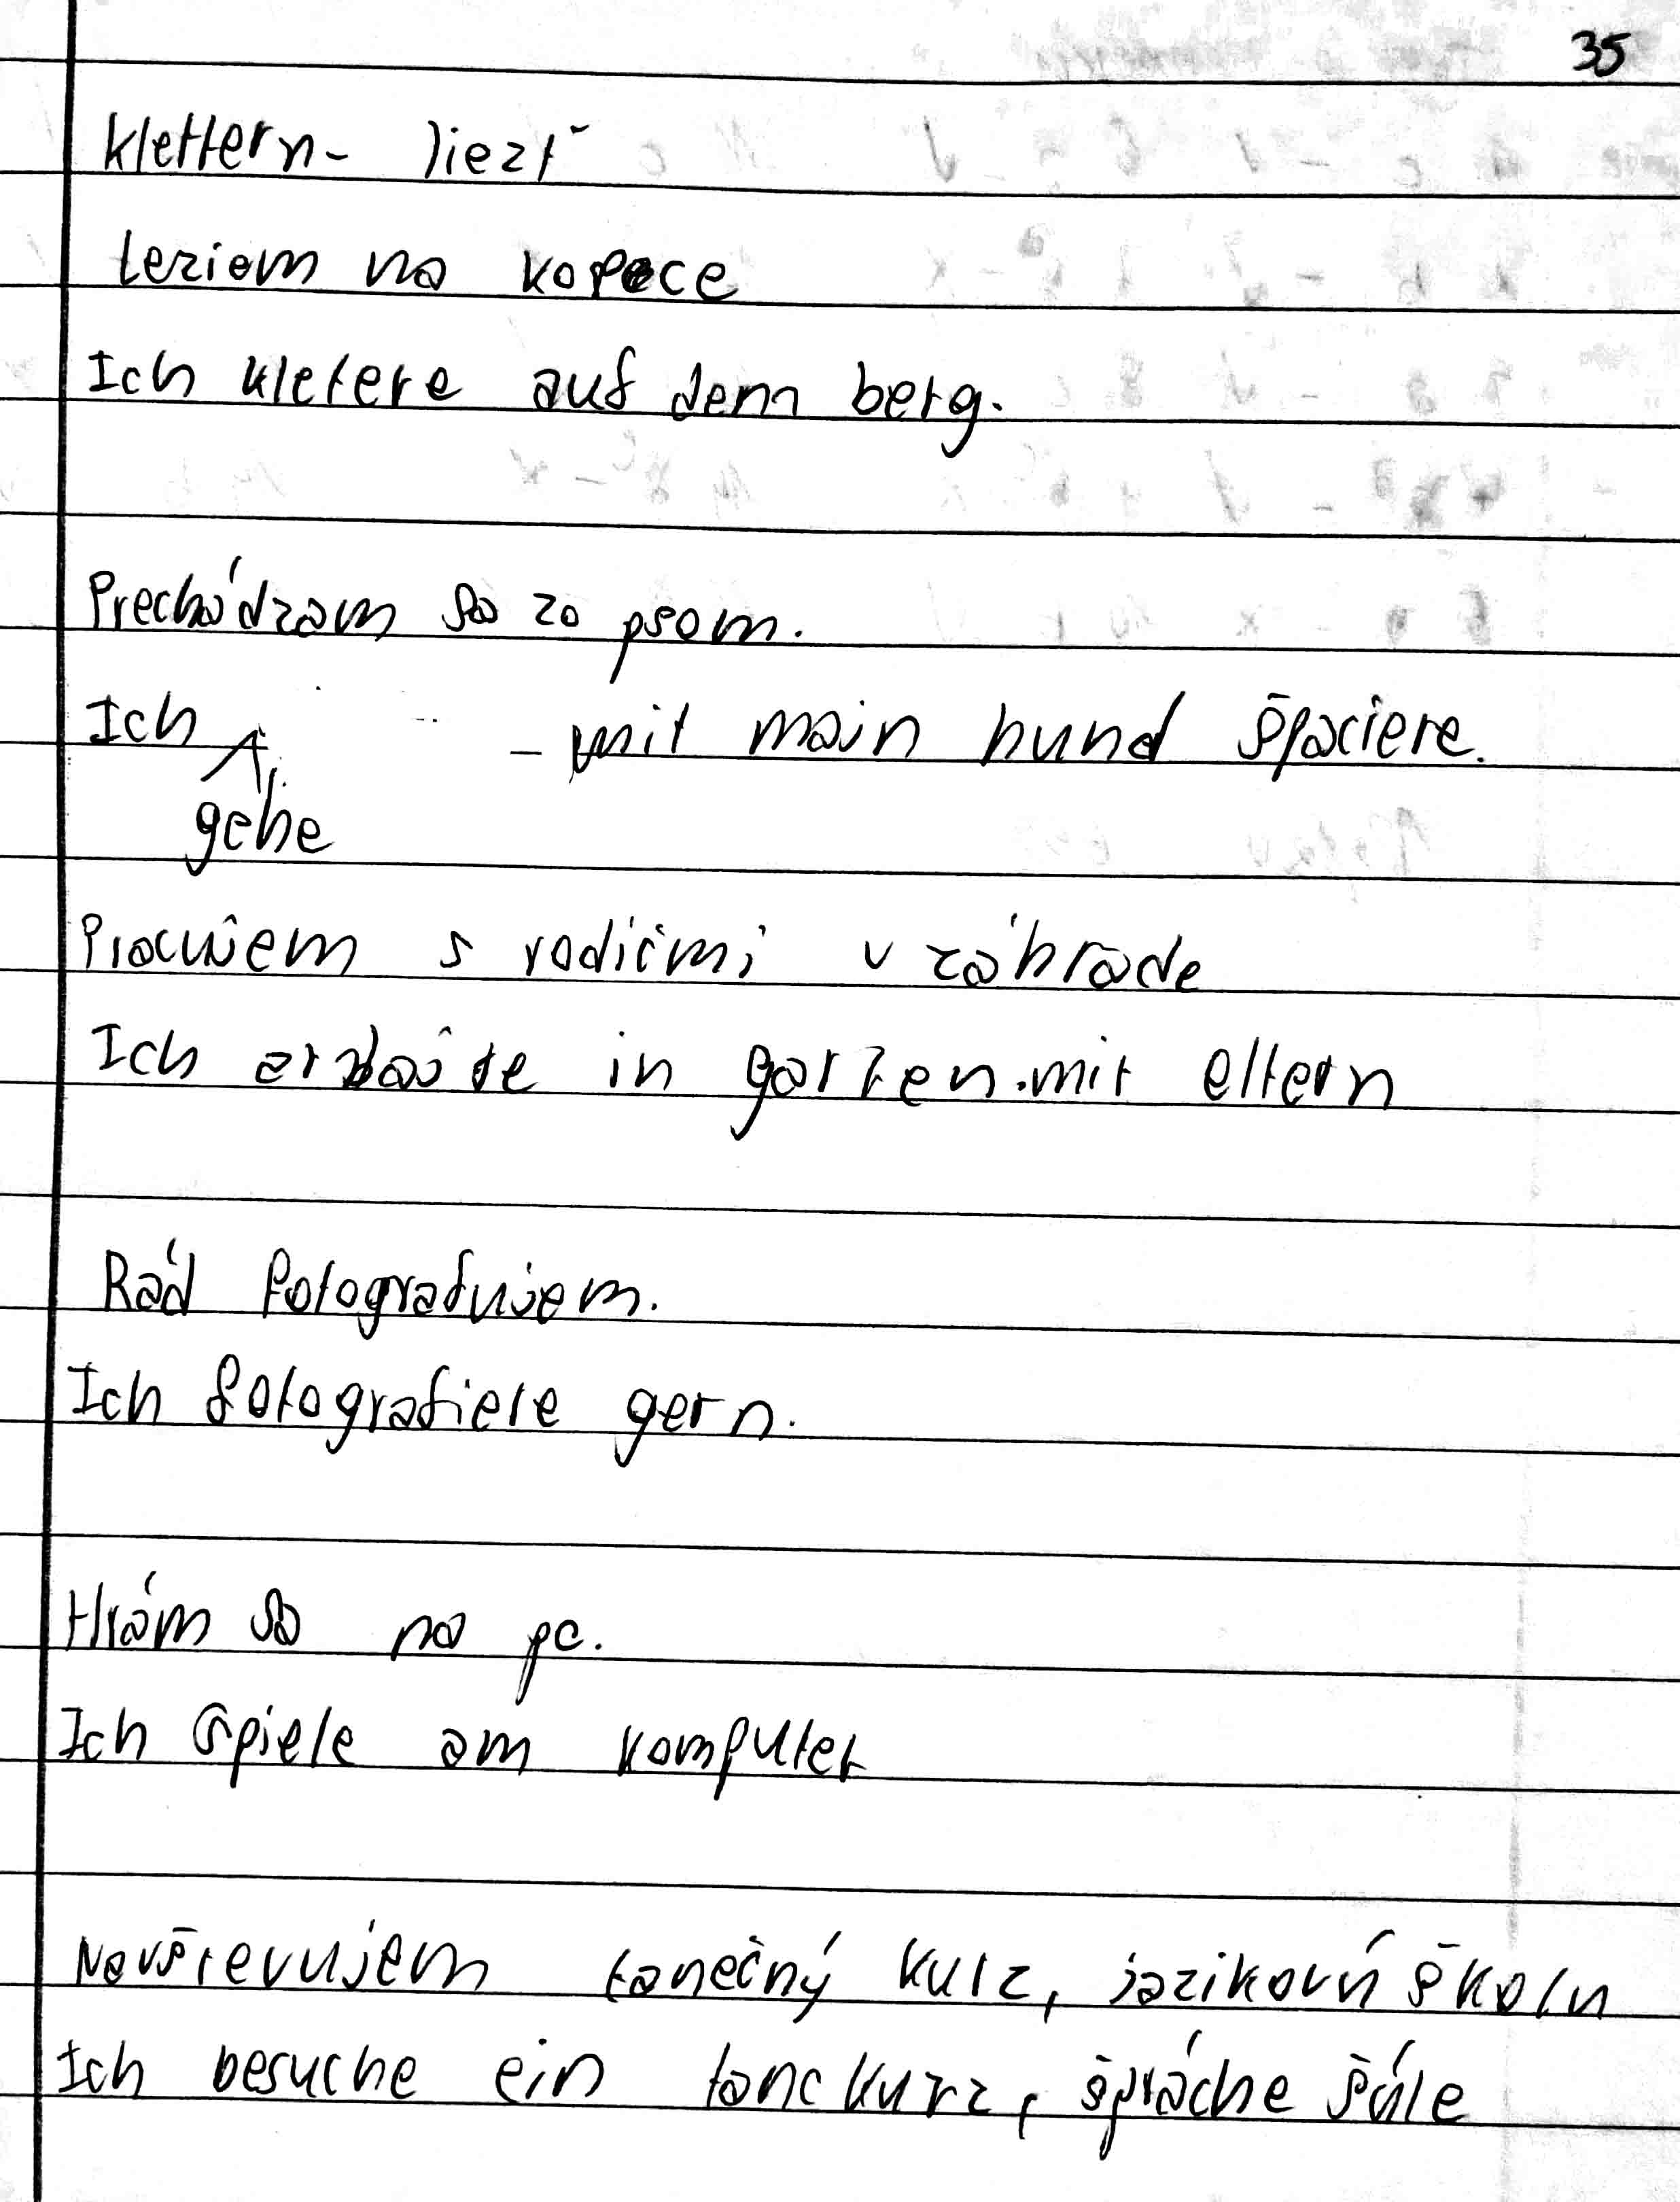 35
klettern - liezť
leziem na kopece
Ich kletere auf dem berg.
Prechádzam sa zo psom.
Ich - mit main hund špaciere.
gehe
Pracujem s rodičmi v záhrade
Ich arbaite in garten. mit eltern
Rád fotografujem.
Ich fotografiere gern.
Hrám sa na pc.
Ich spiele am komputer
Navštevujem tanečný kurz, jazikovú školu
Ich besuche ein tanckurz, špráche šúle